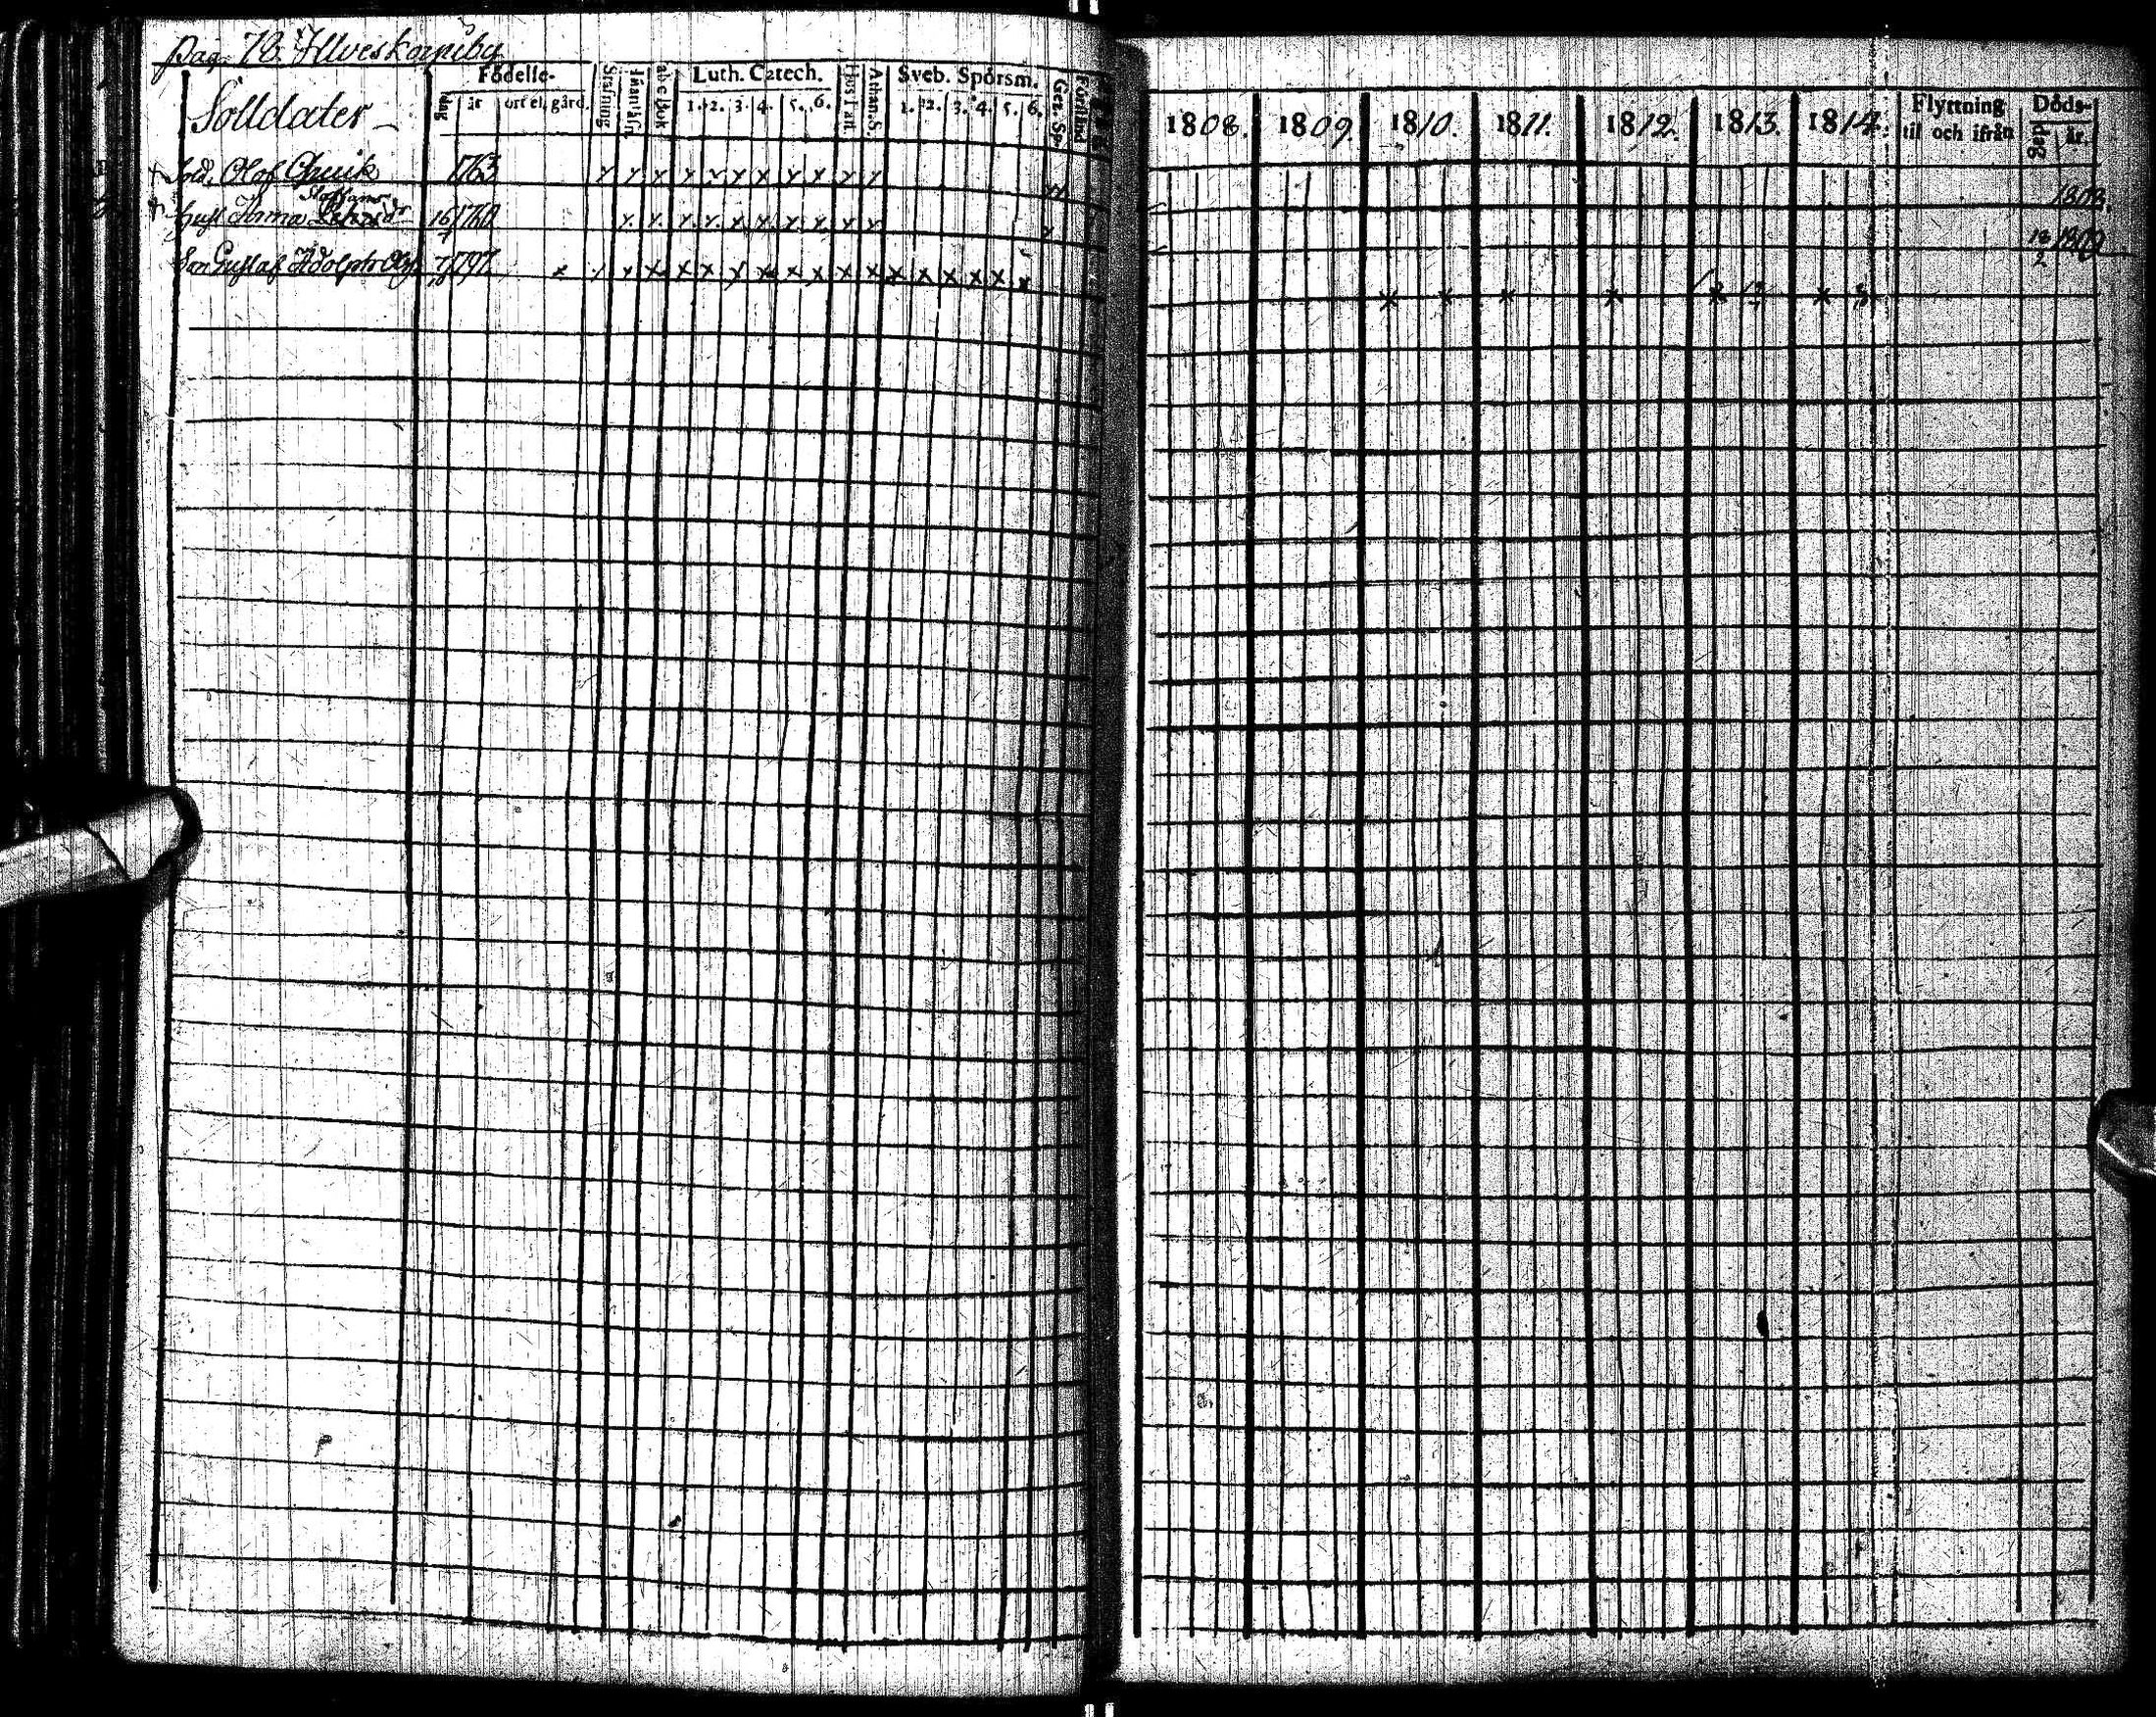 pag. 78. Ilveskorpiby
Solldater
Födelse-
dag
år
ort el. gård.
Stafning
Innantläsn.
ab c bok
Luth. Catech.
1. 2. 3. 4. 5. 6.
Athan. S.
Sveb. Spörsm.
1. 2. 3. 4. 5. 6.
Gez. Sp.
Förstånd
1808. 1809. 1810. 1811. 1812. 1813. 1814.
Flyttning
til och ifrån
Döds-
dag
år.
Sold. Olof Qvick 1763 x x x x x x x x x x x
1808.
Staffans
hust. Anna 16 1760 x x x x x x x x x x
18/2 1809
Son Gustaf Adolph 1797 x x x x x x x x x x x x x x x x x x
x x x x x x